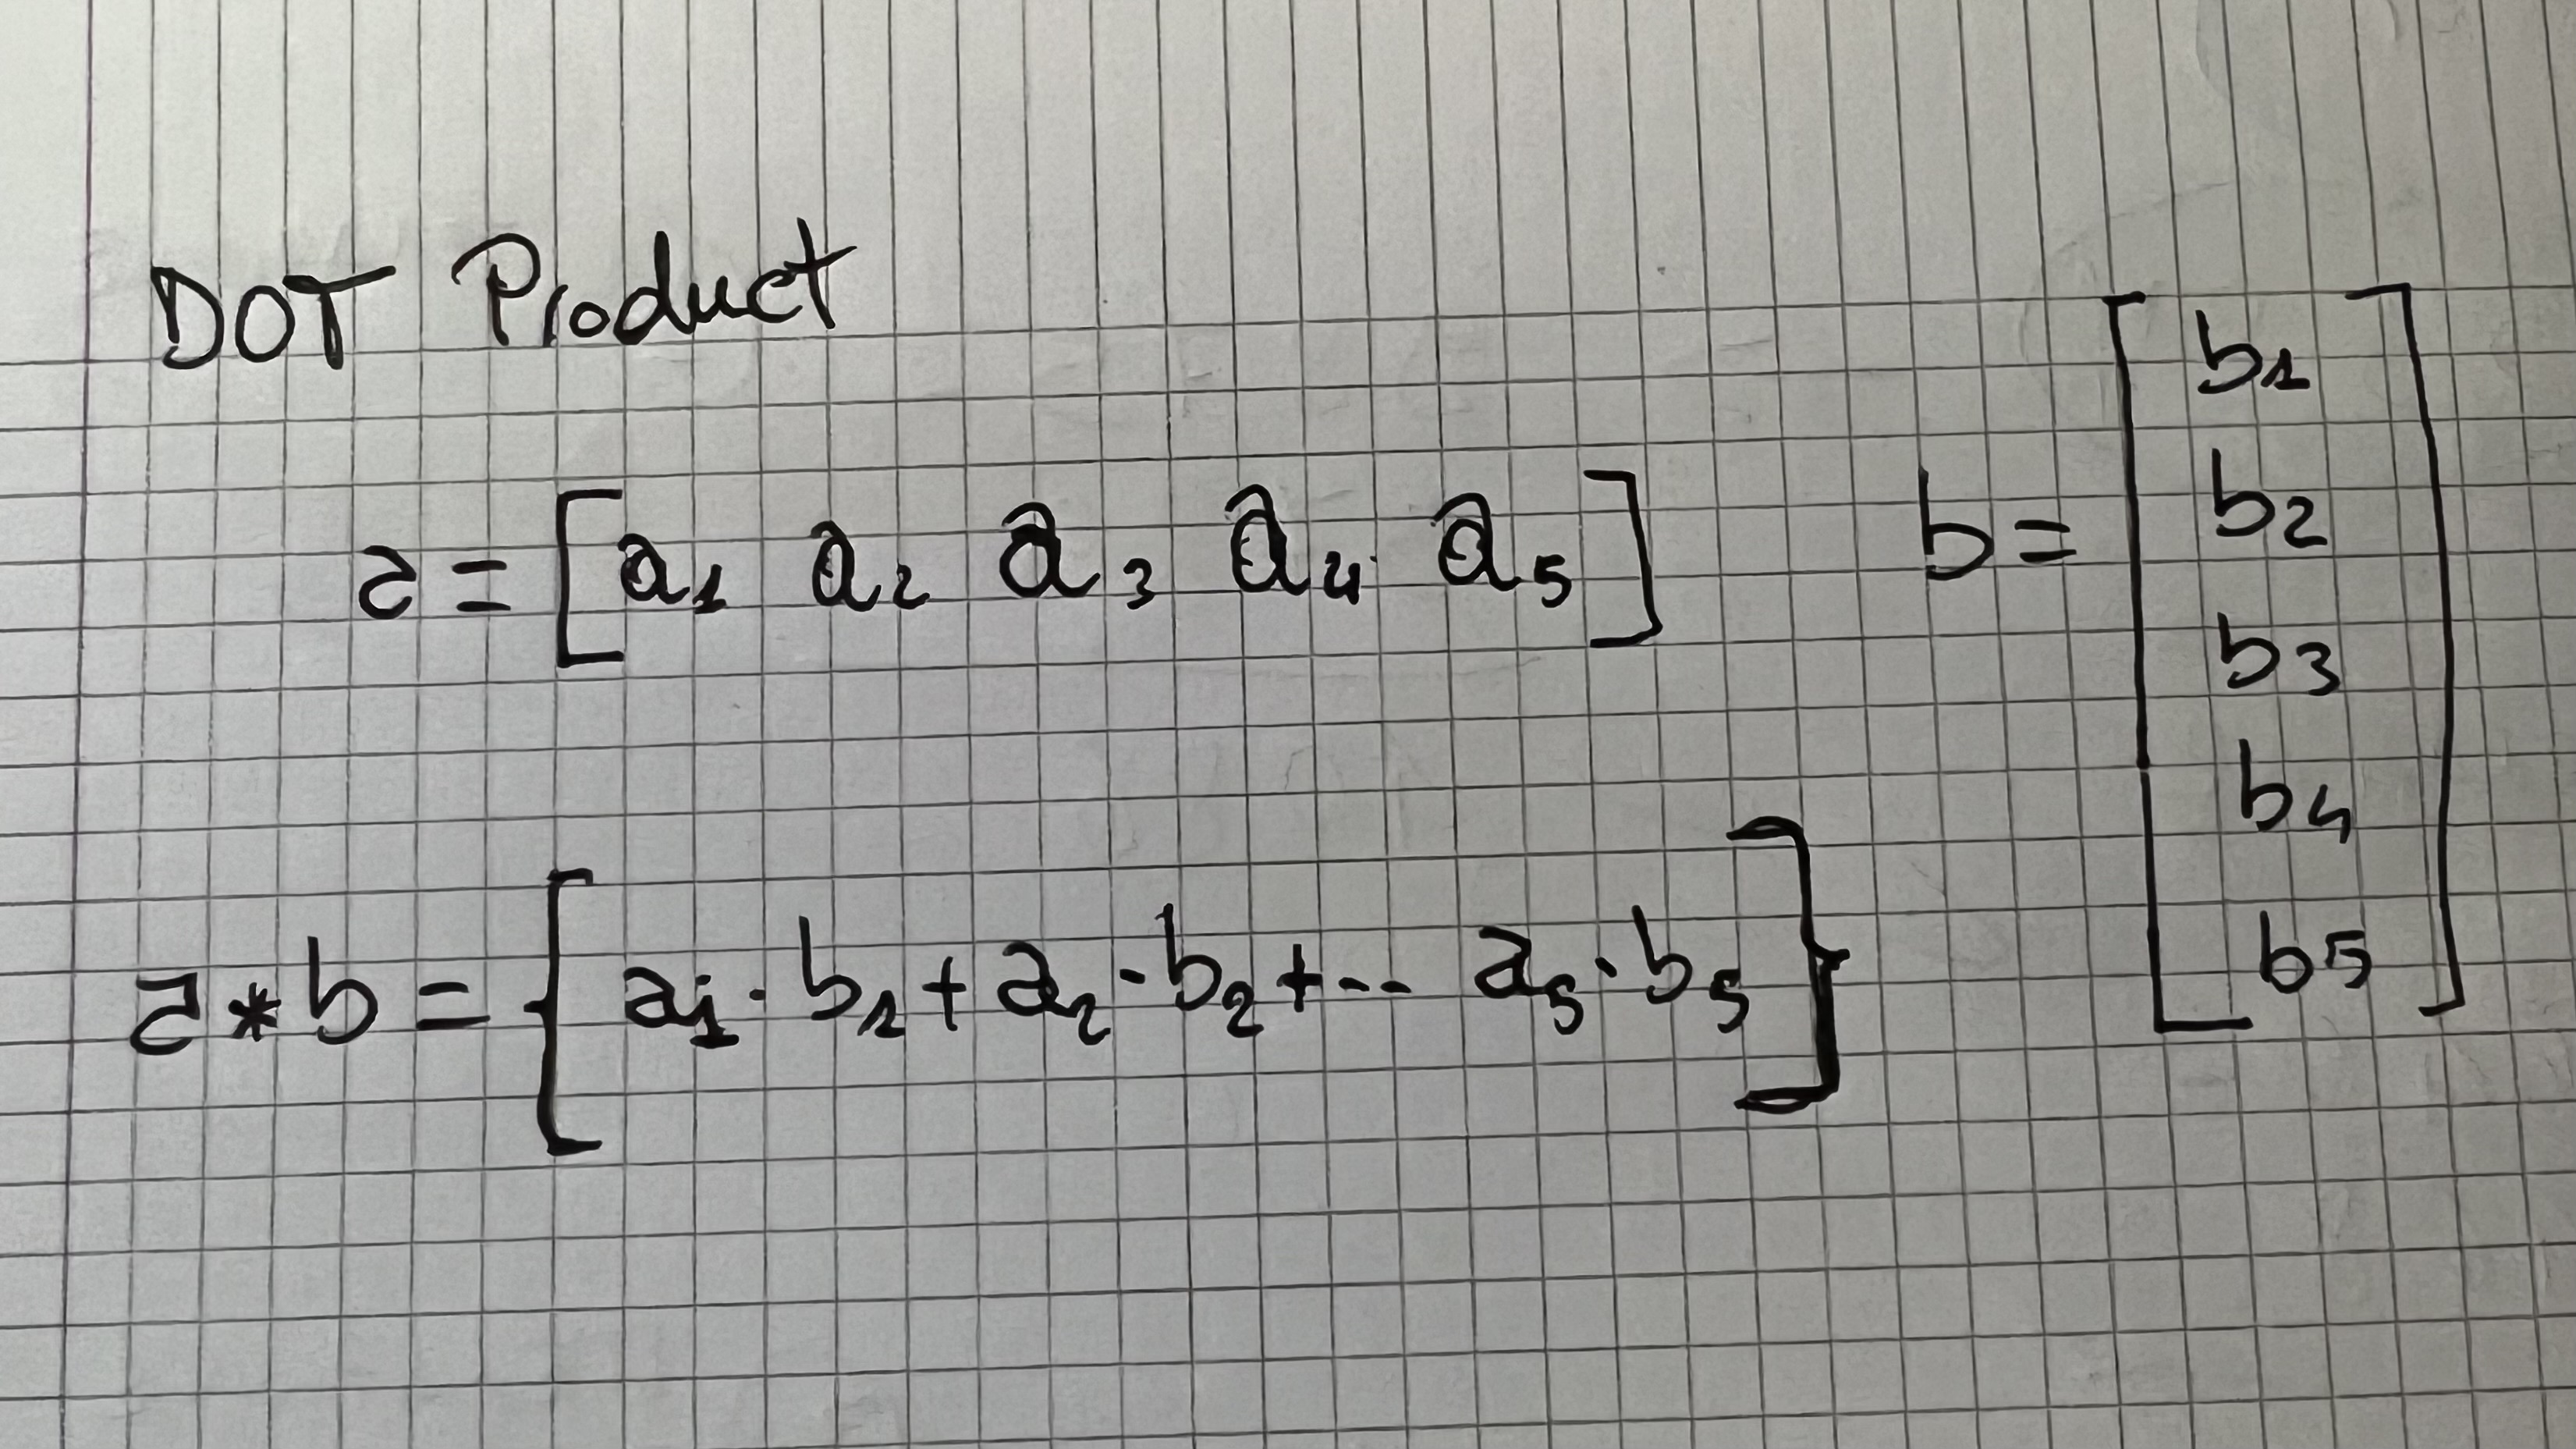 DOT Product
a = [ a1 a2 a3 a4 a5 ]
b = [ b1
b2
b3
b4
b5 ]
a * b = { a1 · b1 + a2 · b2 + ... a5 · b5 }